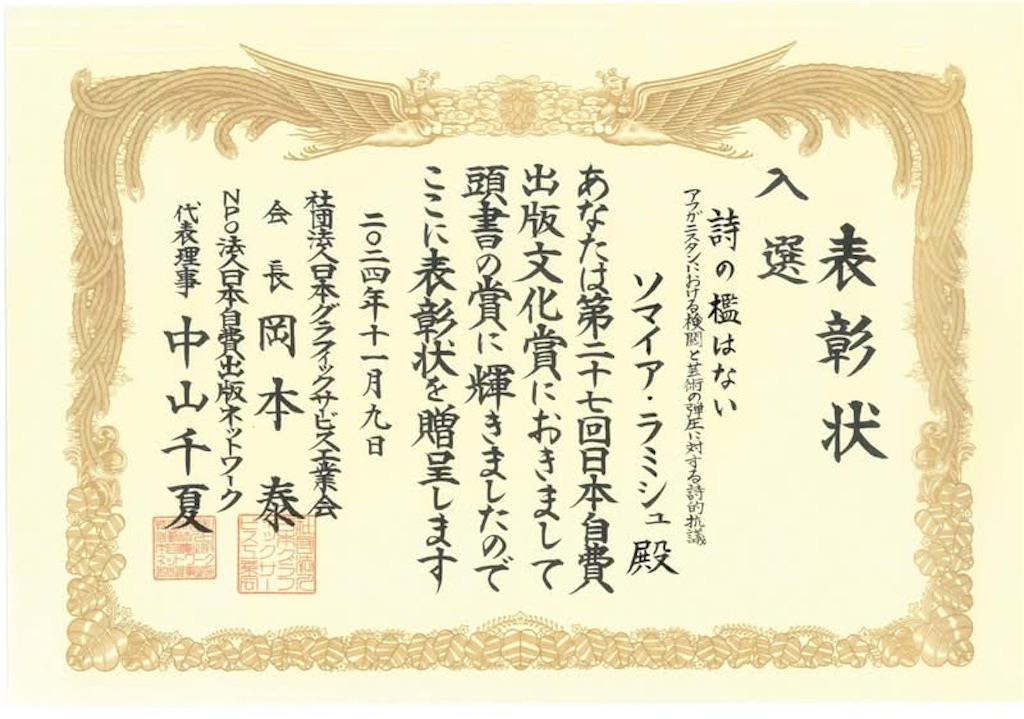 表彰状
入選
詩の檻はない
アフガニスタンにおける検閲と芸術の弾圧に対する詩的抗議
ソマイア・ラミシュ 殿
あなたは第二十七回日本自費
出版文化賞におきまして
頭書の賞に輝きましたので
ここに表彰状を贈呈します
二〇二四年十一月九日
社団法人日本グラフィックサービス工業会
会長 岡本 泰
NPO法人日本自費出版ネットワーク
代表理事 中山千夏